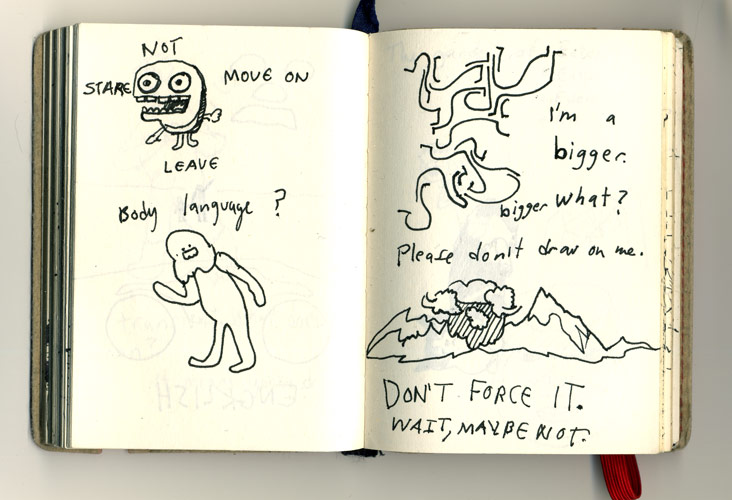 NOT
STARE
MOVE ON
LEAVE
Body language ?
I'm a
bigger.
bigger what?
Please don't draw on me.
DON'T FORCE IT.
WAIT, MAYBE NOT.